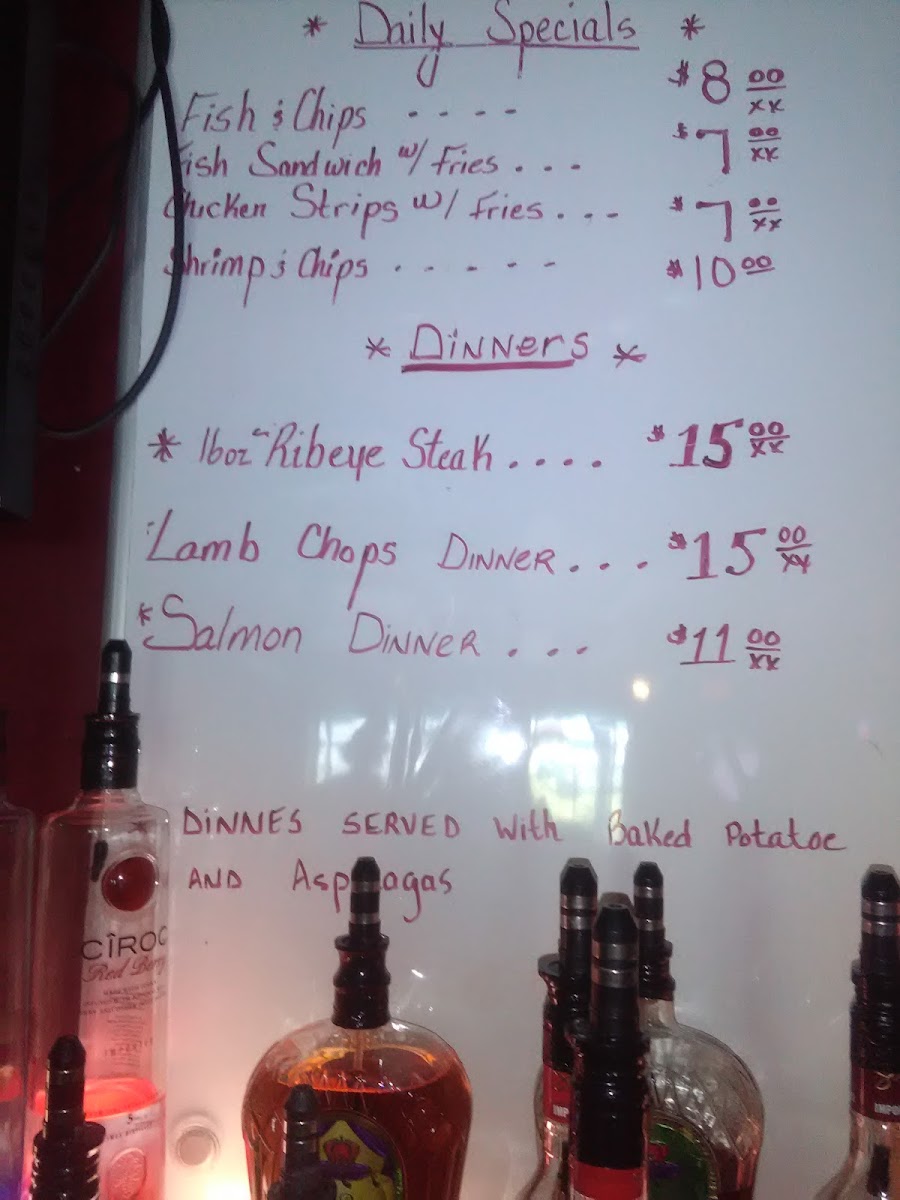 * Daily Specials *
Fish & Chips - - - - $8 00/xx
Fish Sandwich w/ Fries . . . $7 00/xx
Chicken Strips w/ Fries . . . $7 00/xx
Shrimp & Chips . - - - - $10 00
* DiNNers *
* 16oz Ribeye Steak . . . . $15 00/xx
Lamb Chops DINNER . . . $15 00/xx
*Salmon DINNER . . . $11 00/xx
DiNNES SERVED With Baked Potatoe
AND Asparagas
CÎROC
Red Berry